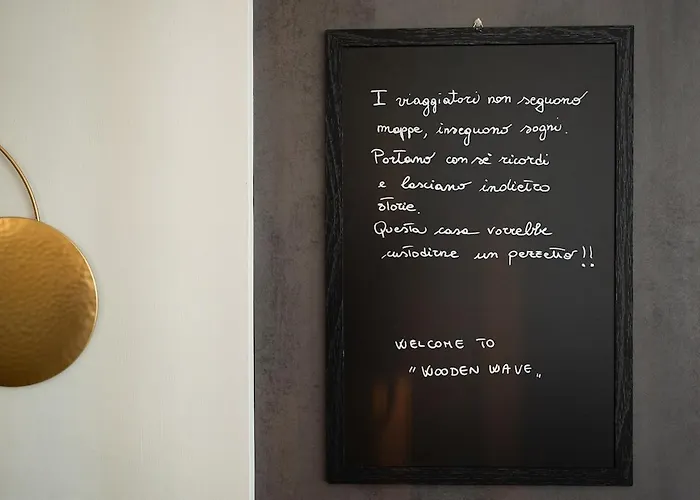 I viaggiatori non seguono
mappe, inseguono sogni.
Portano con sè ricordi
e lasciano indietro
storie.
Questa casa vorrebbe
custodirne un pezzetto!!
WELCOME TO
" WOODEN WAVE „